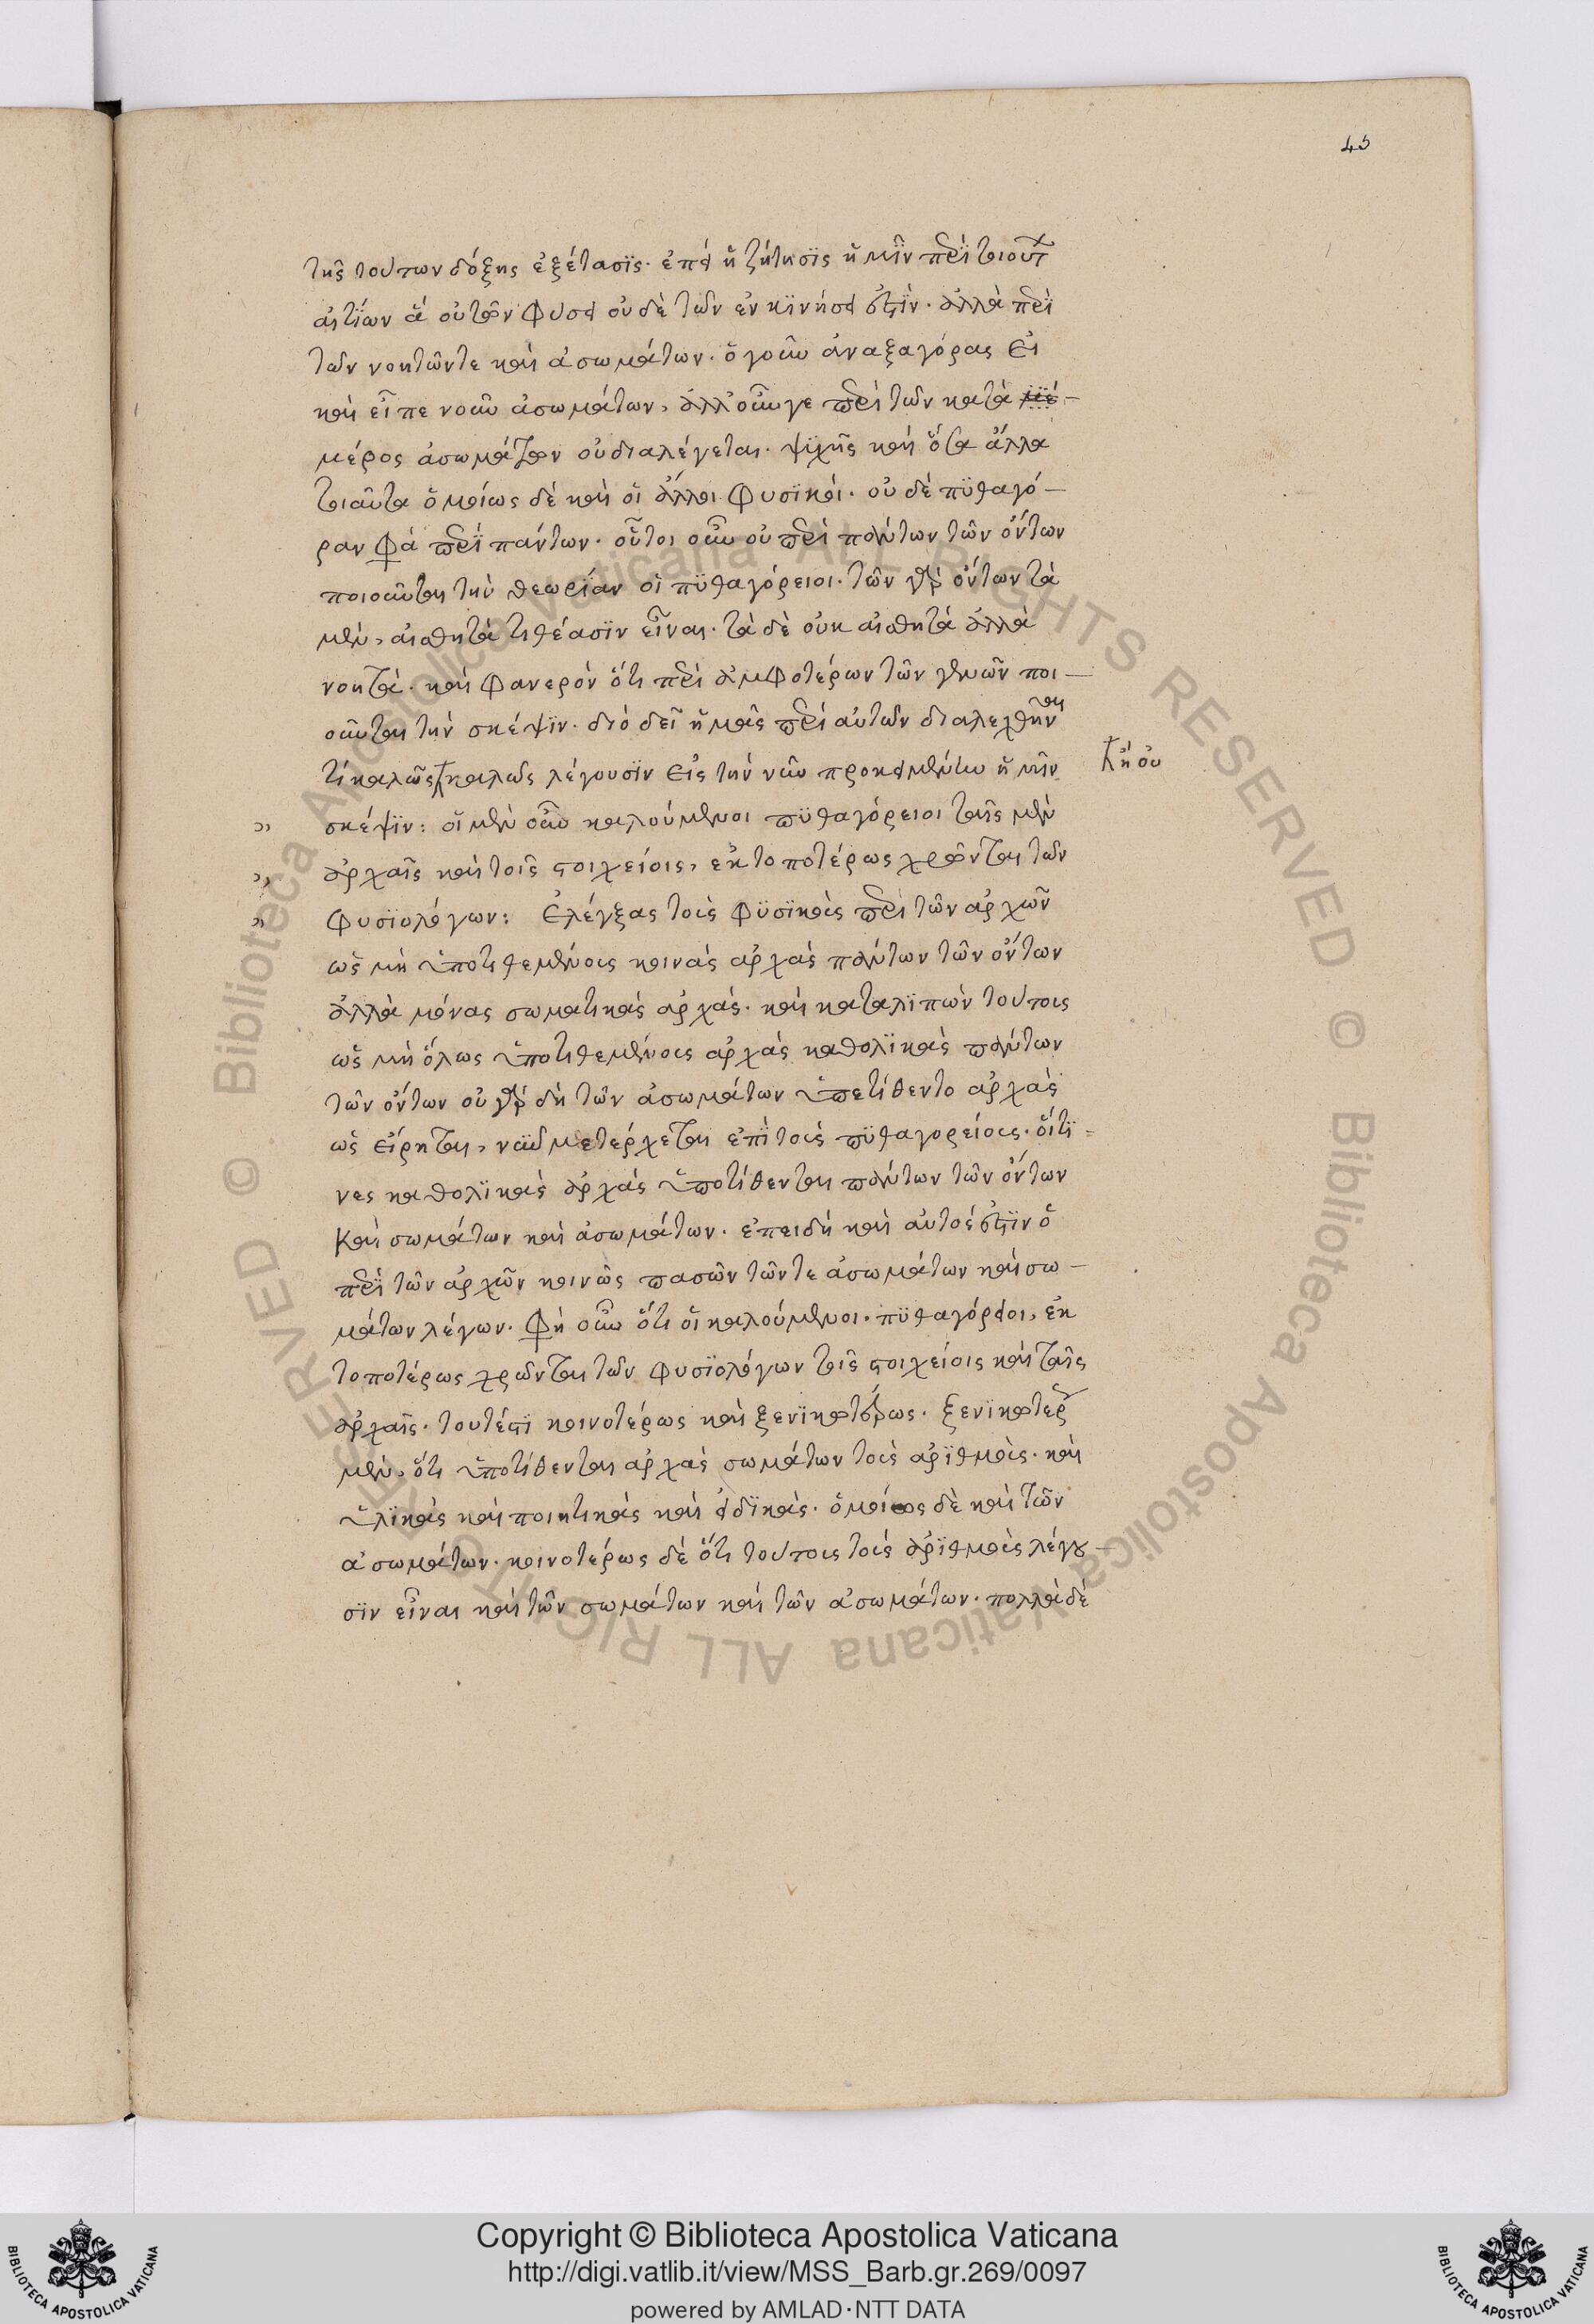 45
τῆς τούτων δόξης ἐξέτασϊς. ἐπεὶ ἡ ζήτησϊς ἡμῖν περὶ τοιούτ
αἰτίων ἃ οὔτε ἐν φύσει οὐδὲ τῶν ἐν κϊνήσει ἐστϊν. ἀλλὰ περὶ
τῶν νοητῶντε καὶ ἀσωμάτων. ὁγοῦν ἀναξαγόρας εἰ
καὶ εἶπε νοῦν ἀσωμάτων, ἀλλ' οὖνγε περὶ τῶν κατὰ
μέρος ἀσωμάτων οὐδιαλέγεται. ψϊχῆς καὶ ὅσα ἄλλα
τοιαῦτα ὁμοίως δὲ καὶ οἱ ἄλλοι φυσϊκοί. οὐ δὲ πϋθαγό-
ραν φα περὶ πάντων. οὗτοι οὖν οὐ περὶ πάντων τῶν ὄντων
ποιοῦνται τὴν θεωρίαν οἱ πϋθαγόρειοι. τῶν γὰρ ὄντων τὰ
μὲν, αἰσθητὰ τιθέασϊν εἶναι. τὰ δὲ οὐκ αἰσθητὰ ἀλλὰ
νοητά. καὶ φανερὸν ὅτι περὶ ἀμφοτέρων τῶν γενῶν ποι-
οῦνται τὴν σκέψϊν. διὸ δεῖ ἡμᾶς περὶ αὐτῶν διαλεχθῆναι
τί καλῶς καλῶς λέγουσϊν εἰς τὴν νῦν προκειμένην ἡμῖν
ἢ οὐ
σκέψϊν: οἱ μὲν οὖν καλούμενοι πϋθαγόρειοι ταῖς μὲν
ἀρχαῖς καὶ τοῖς στοιχείοις, ἐκτοποτέρως χρῶνται τῶν
φυσϊολόγων: Ἐλέγξας τοὺς φϋσϊκοὺς περὶ τῶν ἀρχῶν
ὡς μὴ ὑποτιθεμένους κοινὰς ἀρχὰς πάντων τῶν ὄντων
ἀλλὰ μόνας σωματικὰς ἀρχάς. καὶ καταλϊπὼν τούτους
ὡς μὴ ὅλως ὑποτιθεμένους ἀρχὰς καθολϊκὰς πάντων
τῶν ὄντων οὐ γὰρ δὴ τῶν ἀσωμάτων ὑπετίθεντο ἀρχὰς
ὡς εἴρηται, νῦν μετέρχεται ἐπὶ τοὺς πϋθαγορείους. οἵτϊ-
νες καθολϊκὰς ἀρχὰς ὑποτίθενται πάντων τῶν ὄντων
καὶ σωμάτων καὶ ἀσωμάτων. ἐπειδὴ καὶ αὐτός ἐστϊν ὁ
περὶ τῶν ἀρχῶν κοινῶς πασῶν τῶντε ἀσωμάτων καὶ σω-
μάτων λέγων. φη οὖν ὅτι οἱ καλούμενοι. πϋθαγόρειοι, ἐκ
τοποτέρως χρῶνται τῶν φυσϊολόγων τοῖς στοιχείοις καὶ ταῖς
ἀρχαῖς. τουτέστϊ κοινοτέρως καὶ ξενϊκωτέρως. ξενϊκωτερ
μὲν, ὅτι ὑποτίθενται ἀρχὰς σωμάτων τοὺς ἀρϊθμούς. καὶ
ὑλϊκὰς καὶ ποιητικὰς καὶ εἰδϊκάς. ὁμοίως δὲ καὶ τῶν
ἀσωμάτων. κοινοτέρως δὲ ὅτι τούτους τοὺς ἀρϊθμοὺς λέγου-
σϊν εἶναι καὶ τῶν σωμάτων καὶ τῶν ἀσωμάτων. πολλὰ δὲ
Copyright © Biblioteca Apostolica Vaticana
http://digi.vatlib.it/view/MSS_Barb.gr.269/0097
powered by AMLAD·NTT DATA